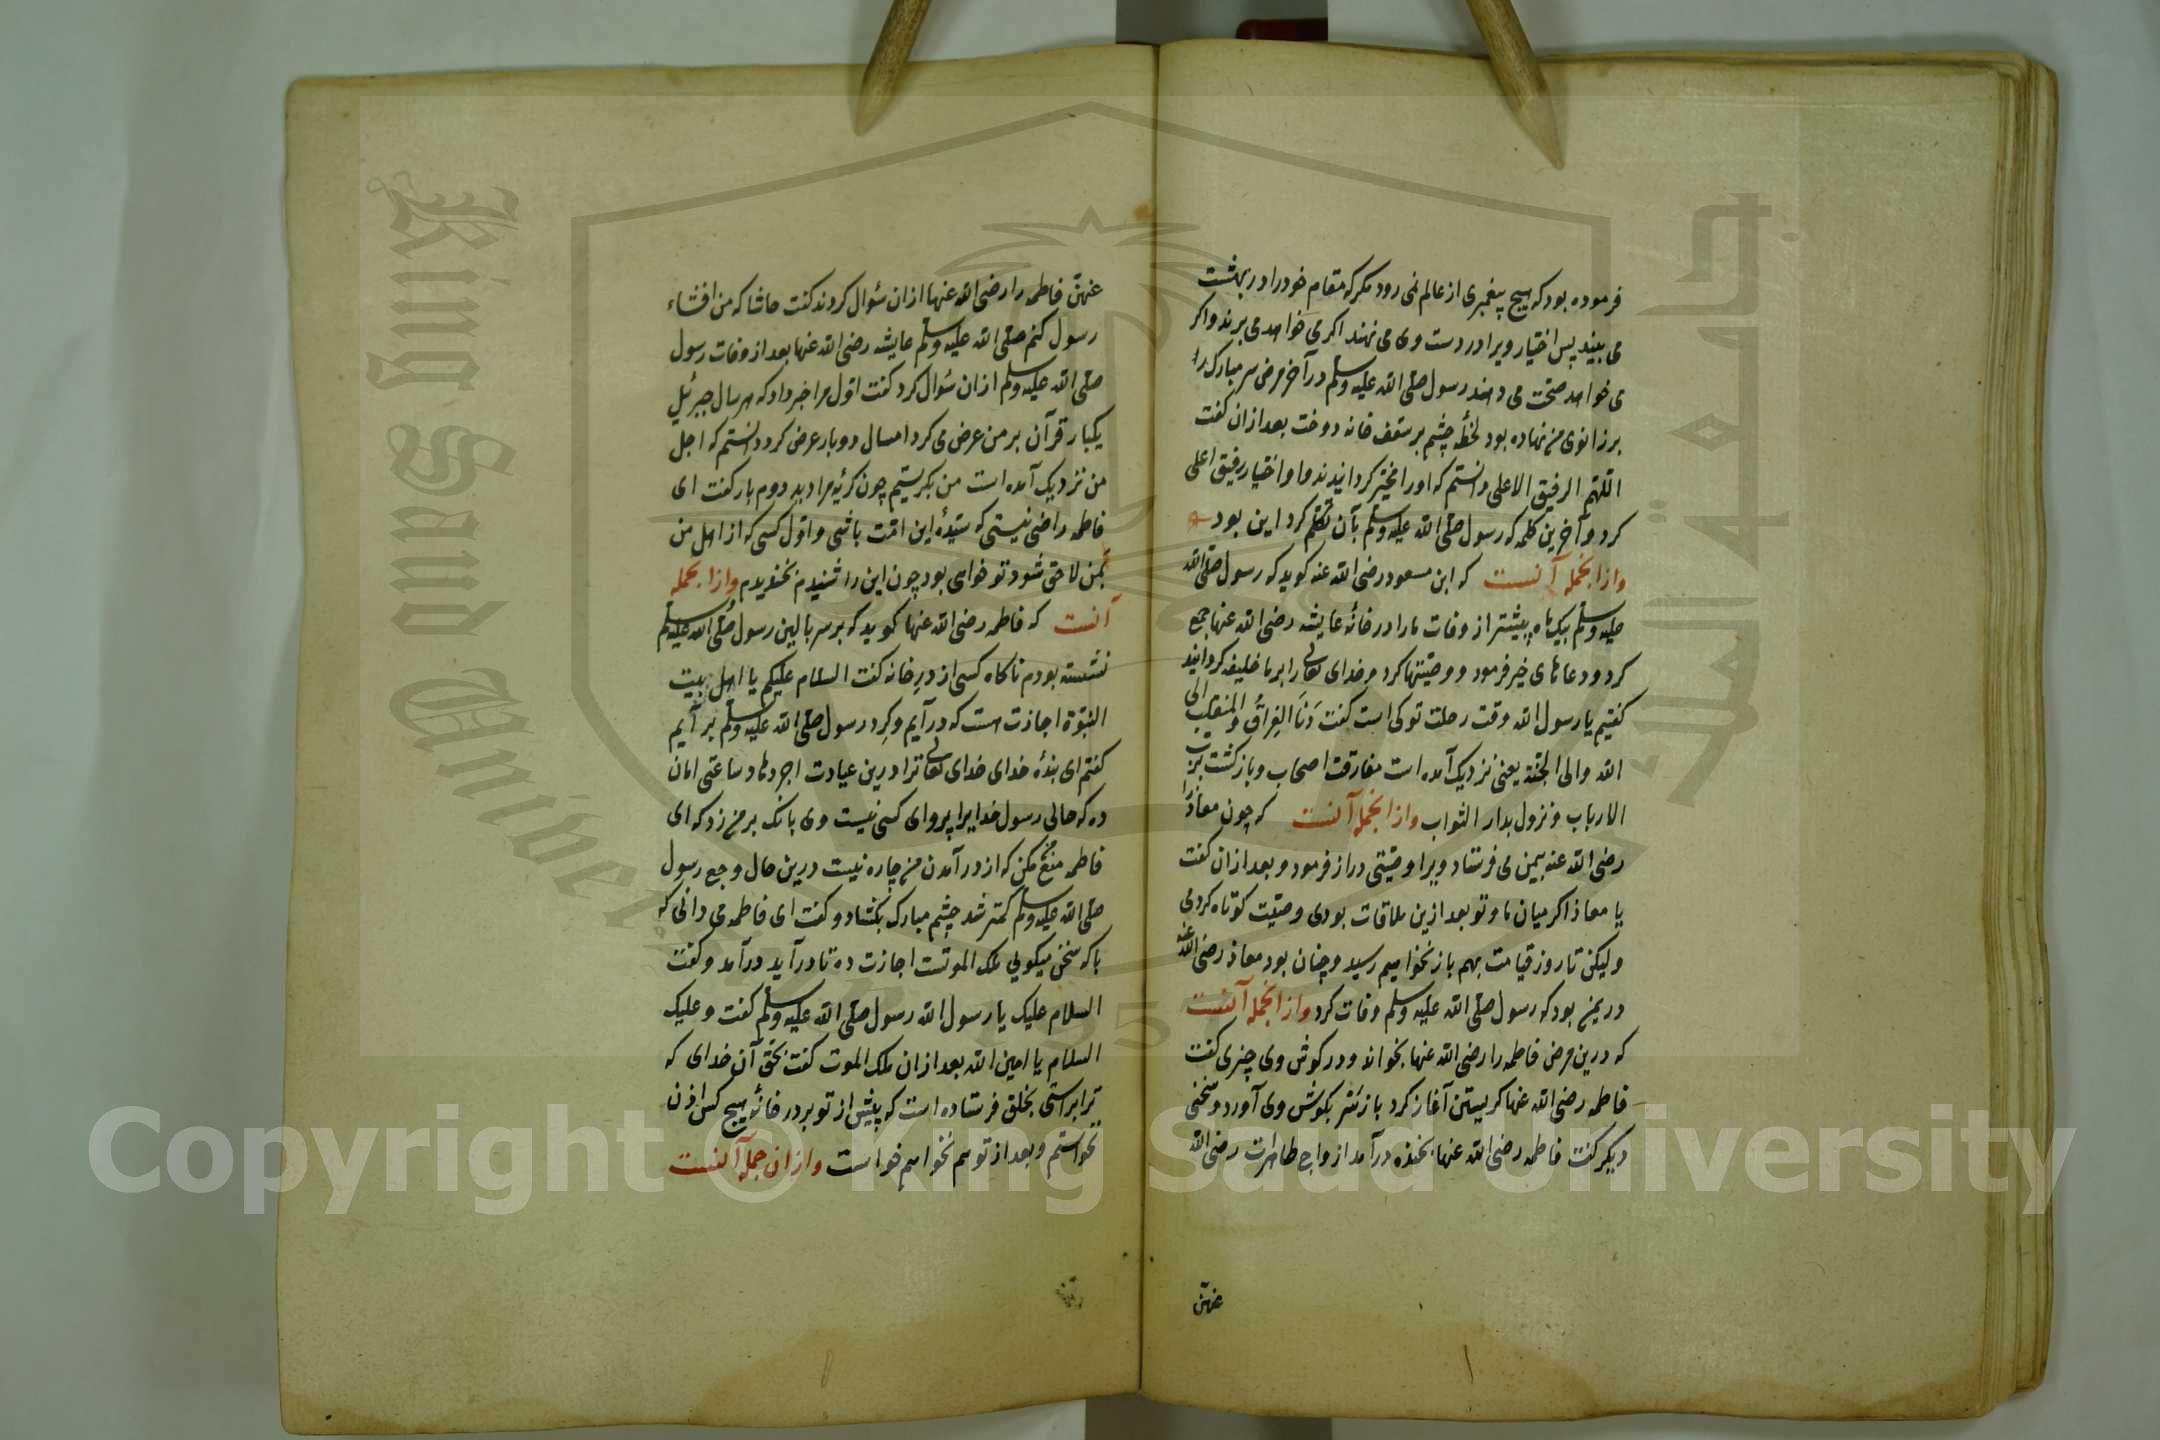 فرموده بود که هیچ پیغمبری از عالم نمی رود مکر که مقام خود را در بهشت
می بیند پس اختیار ویرا در دست وی می نهند اکر می خواهد می برند واکر
می خواهد صحّت می دهند رسول صلّی الله علیه وسلّم در آخر مرض سر مبارک را
بر زانوی من نهاده بود لحظهٔ چشم بر سقف خانه دوخت بعد ازان کفت
اللّهّم الرفیق الاعلی دانستم که اورا مخیّر کردانیدند و او اختیار رفیق اعلی
کرد و آخرین کلمه که رسول صلّی الله علیه وسلّم بآن تکلّم کرد این بود
وازانجمله آنست که ابن مسعود رضی الله عنه کوید که رسول صلّی الله
علیه وسلّم بیک ماه پیشتر از وفات مارا در خانهٔ عایشه رضی الله عنها جمع
کرد ودعاهای خیر فرمود ووصیّتها کرد و خدای تعالی را بر ما خلیفه کردانید
کفتیم یا رسول الله وقت رحلت تو کی است کفت دَنَا الفِراقُ والمنقلب الی
الله والی الجنّة یعنی نزدیک آمده است مفارقت اصحاب وبازکشت بربّ
الارباب ونزول بدار الثواب وازانجمله آنست که چون معاذ را
رضی الله عنه بیمن می فرستاد ویرا وصیّتی دراز فرمود وبعد ازان کفت
یا معاذ اکر میان ما وتو بعد ازین ملاقات بودی وصیّت کوتاه کردمی
ولیکن تا روز قیامت بهم باز نخواهیم رسید وچنان بود معاذ رضی الله عنه
در یمن بود که رسول صلّی الله علیه وسلّم وفات کرد وازانجمله آنست
که درین مرض فاطمه را رضی الله عنها بخواند ودر کوش وی چیزی کفت
فاطمه رضی الله عنها کریستن آغاز کرد باز سر بکوش وی آورد وسخنی
دیکر کفت فاطمه رضی الله عنها بخنده درآمد ازواج طاهرات رضی الله
عنهنّ
عنهنّ فاطمه را رضی الله عنها ازان سؤال کردند کفت حاشا که من افشاء
رسول کنم صلّی الله علیه وسلّم عایشه رضی الله عنها بعد از وفات رسول
صلّی الله علیه وسلّم ازان سؤال کرد کفت اوّل مرا خبر داد که هر سال جبرئیل
یکبار قرآن بر من عرض می کرد امسال دوبار عرض کرد دانستم که اجل
من نزدیک آمده است من بکریستم چون کریهٔ مرا دید دوم بار کفت ای
فاطمه راضی نیستی که سیّدهٔ این امّت باشی واوّل کسی که از اهل من
بمن لاحق شود تو خواهی بود چون این را شنیدم بخندیدم وازانجمله
آنست که فاطمه رضی الله عنها کوید که بر سر بالین رسول صلّی الله علیه وسلّم
نشسته بودم ناکاه کسی از در خانه کفت السلام علیکم یا اهل بیت
النبوّة اجازت هست که درآیم وکرد رسول صلّی الله علیه وسلّم برآیم
کفتم ای بندهٔ خدای خدای تعالی ترا درین عیادت اجر دهاد ساعتی امان
ده که حالی رسول خدایرا پروای کسی نیست وی بانک بر من زد که ای
فاطمه منع مکن که از در آمدن من چاره نیست درین حال وجع رسول
صلّی الله علیه وسلّم کمتر شد چشم مبارک بکشاد وکفت ای فاطمه می دانی که
با که سخن میکویی ملک الموتست اجازت ده تا درآید درآمد وکفت
السلام علیک یا رسول الله رسول صلّی الله علیه وسلّم کفت وعلیک
السلام یا امین الله بعد ازان ملک الموت کفت بحقّ آن خدای که
ترا براستی بخلق فرستاده است که پیش از تو بر در خانهٔ هیچ کس اذن
نخواستم وبعد از تو هم نخواهم خواست وازان جمله آنست
Copyright © King Saud University
King Saud University
1957